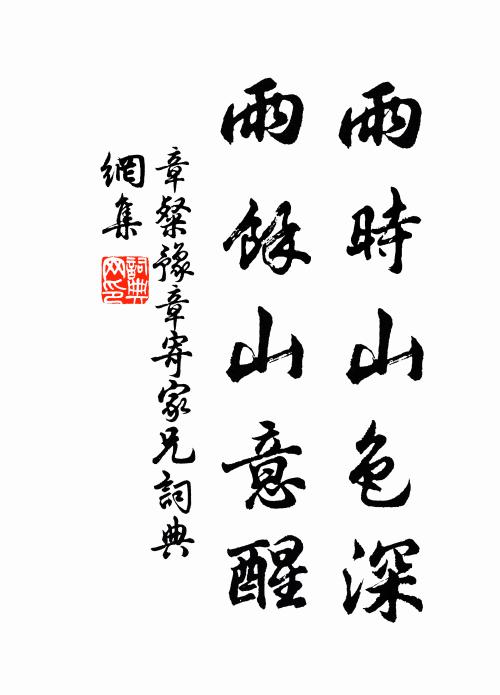 雨時山色深
雨餘山意醒
章粲豫章寄家兄詞典
網集
詞典
网印